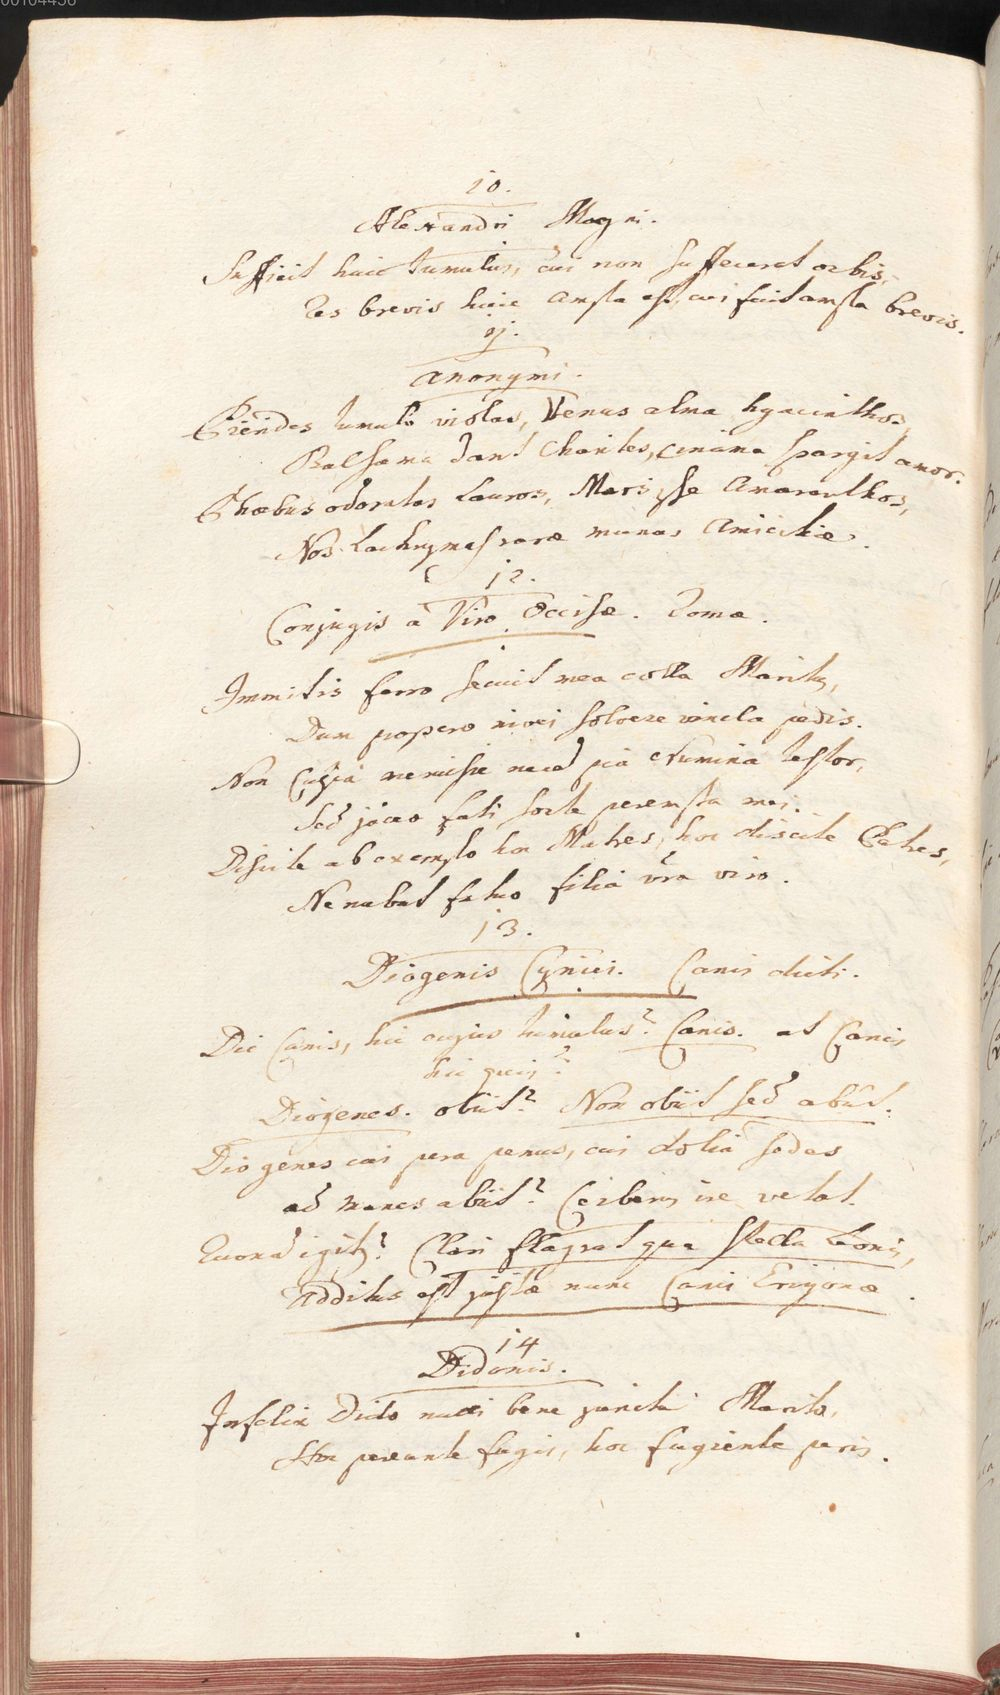 10.
Alexandri Magni.
Sufficit huic tumulus, cui non suffeceret orbis,
Res brevis huic ampla est, cui fuit ampla brevis.
11.
Anonymi.
Pierides tumulo violas, Venus alma hyacinthos,
Balsama dant Charites, cinama spargit amor.
Phœbus odoratas Lauros, Mars ipse Amaranthos,
Nos Lachrymas raræ munus Amicitiæ.
12.
Conjugis a Viro Occisæ. Romæ.
Immitis ferro secuit mea colla Maritus,
Dum propero nivei solvere vincla pedis.
Non culpa me necad pia Numina testor,
Sed jaceo fati sorte perempta mei.
Discite ab exemplo hoc Matres, hoc discite Patres,
Ne nubat fatuo filia vra viro.
13.
Diogenis Cynici. Canis dicti.
Dic Canis, hic cujus tumulus? Canis. at Canis
hic quis?
Diogenes. obiit? Non obiit sed abiit.
Diogenes cui pera penus, cui dolia sedes
ad manes abiit? Cerberus ire vetat.
Quonam igitur? Clari flagrat qua stella Leonis,
Additus est justæ nunc Canis Erigonæ.
14
Didonis.
Infelix Dido nulli bene juncta Marito,
Hoc pereunte fugis, hoc fugiente peris.